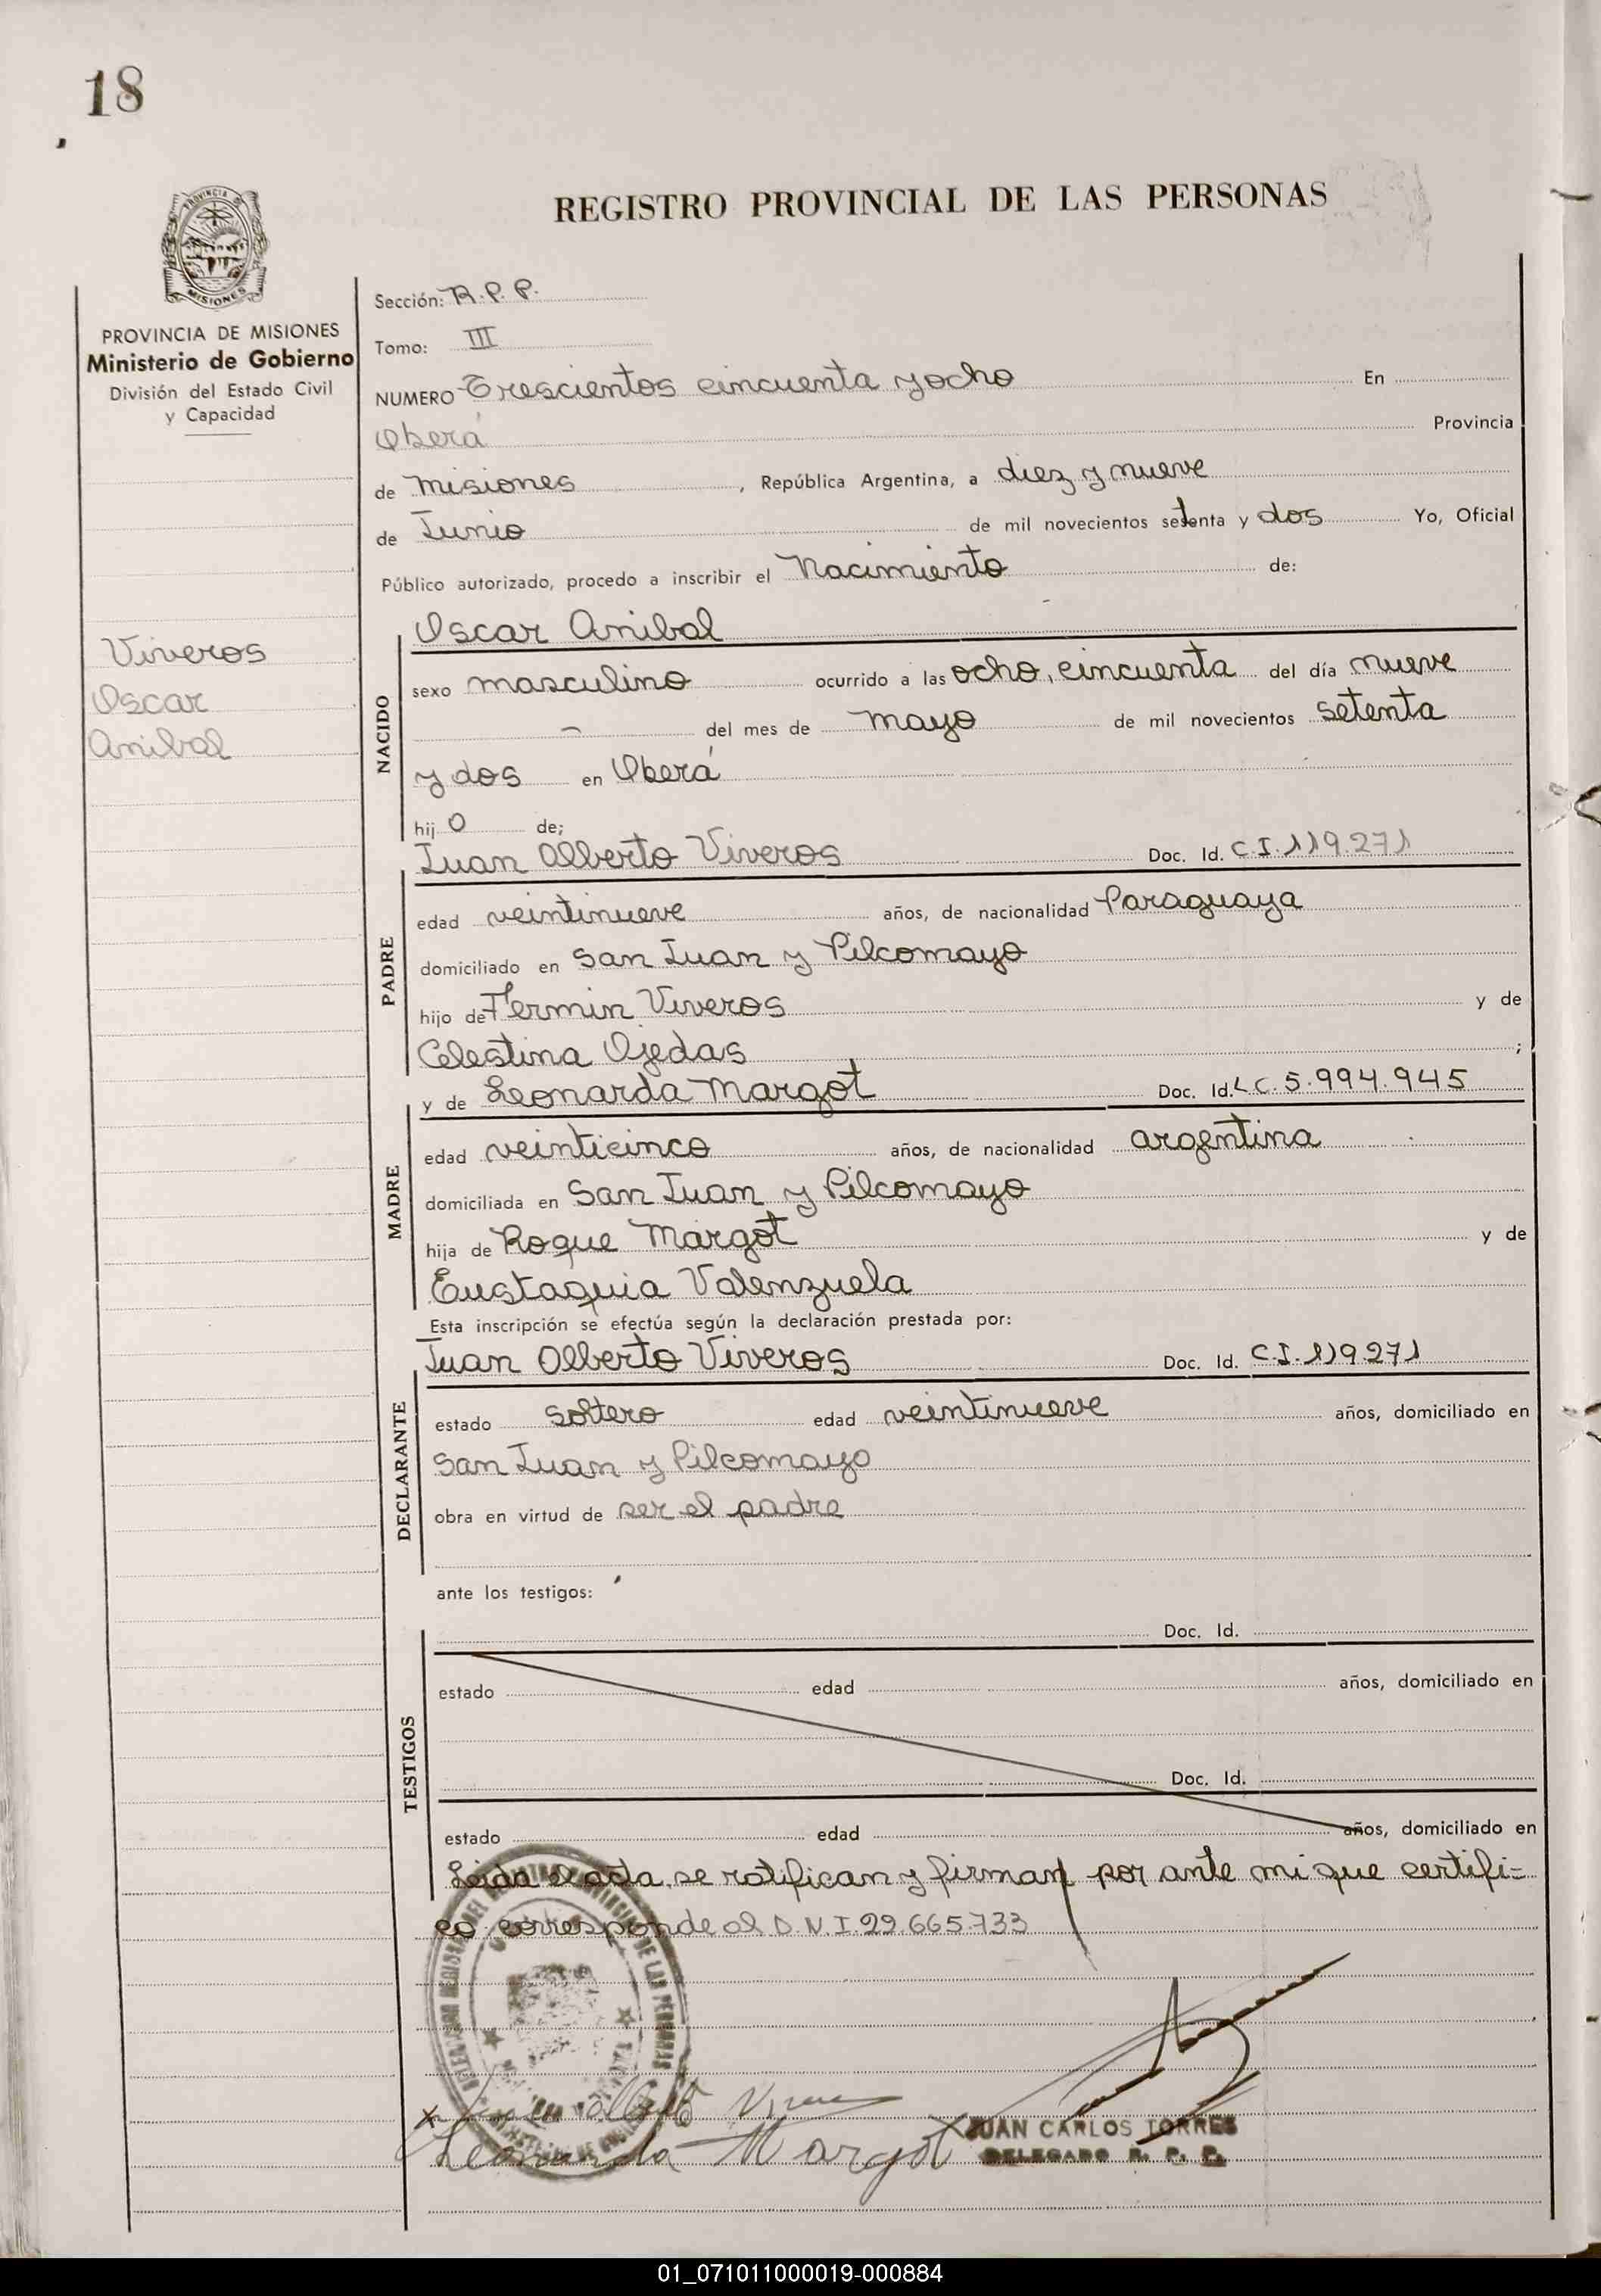 18
REGISTRO PROVINCIAL DE LAS PERSONAS
PROVINCIA
MISIONES
PROVINCIA DE MISIONES
Ministerio de Gobierno
División del Estado Civil
y Capacidad
Viveros
Oscar
Anibal
Sección: R.P.P.
Tomo: III
NUMERO Trescientos cincuenta y ocho En
Oberá Provincia
de Misiones, República Argentina, a diez y nueve
de Junio de mil novecientos setenta y dos Yo, Oficial
Público autorizado, procedo a inscribir el Nacimiento de:
NACIDO
Oscar Anibal
sexo masculino ocurrido a las ocho, cincuenta del día nueve
- del mes de mayo de mil novecientos setenta
y dos en Oberá
hij o de;
PADRE
Juan Alberto Viveros Doc. Id. C.I.119.271
edad veintinueve años, de nacionalidad Paraguaya
domiciliado en San Juan y Pilcomayo
hijo de Fermin Viveros y de
Celestina Ojedas ;
MADRE
y de Leonarda Margot Doc. Id. L.C. 5.994.945
edad veinticinco años, de nacionalidad argentina
domiciliada en San Juan y Pilcomayo
hija de Roque Margot y de
Eustaquia Valenzuela
Esta inscripción se efectúa según la declaración prestada por:
DECLARANTE
Juan Alberto Viveros Doc. Id. C.I.119.271
estado soltero edad veintinueve años, domiciliado en
San Juan y Pilcomayo
obra en virtud de ser el padre
ante los testigos:
TESTIGOS
Doc. Id.
estado edad años, domiciliado en
Doc. Id.
estado edad años, domiciliado en
Leida el acta, se ratifican y firman por ante mi que certifi=
co corresponde al D.N.I.22.665.733
Leonarda Margot
JUAN CARLOS TORRES
DELEGADO R. P. P.
01_071011000019-000884